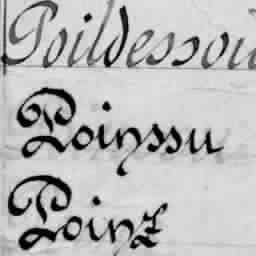 Poildessou
Poinssu
Poinz